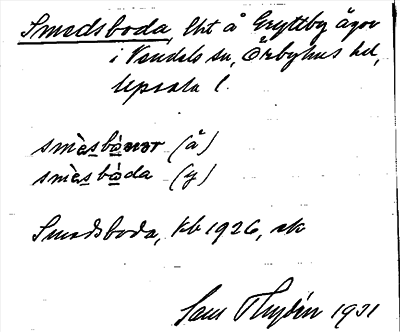 Smedsboda, lht å Gryttby ägor
i Vendels sn, Örbyhus hd,
Uppsala l.
smèsbò̱nər (å)
smèsbò̱da (y)
Smedsboda, kb 1926, ek
Sam Thydén 1931